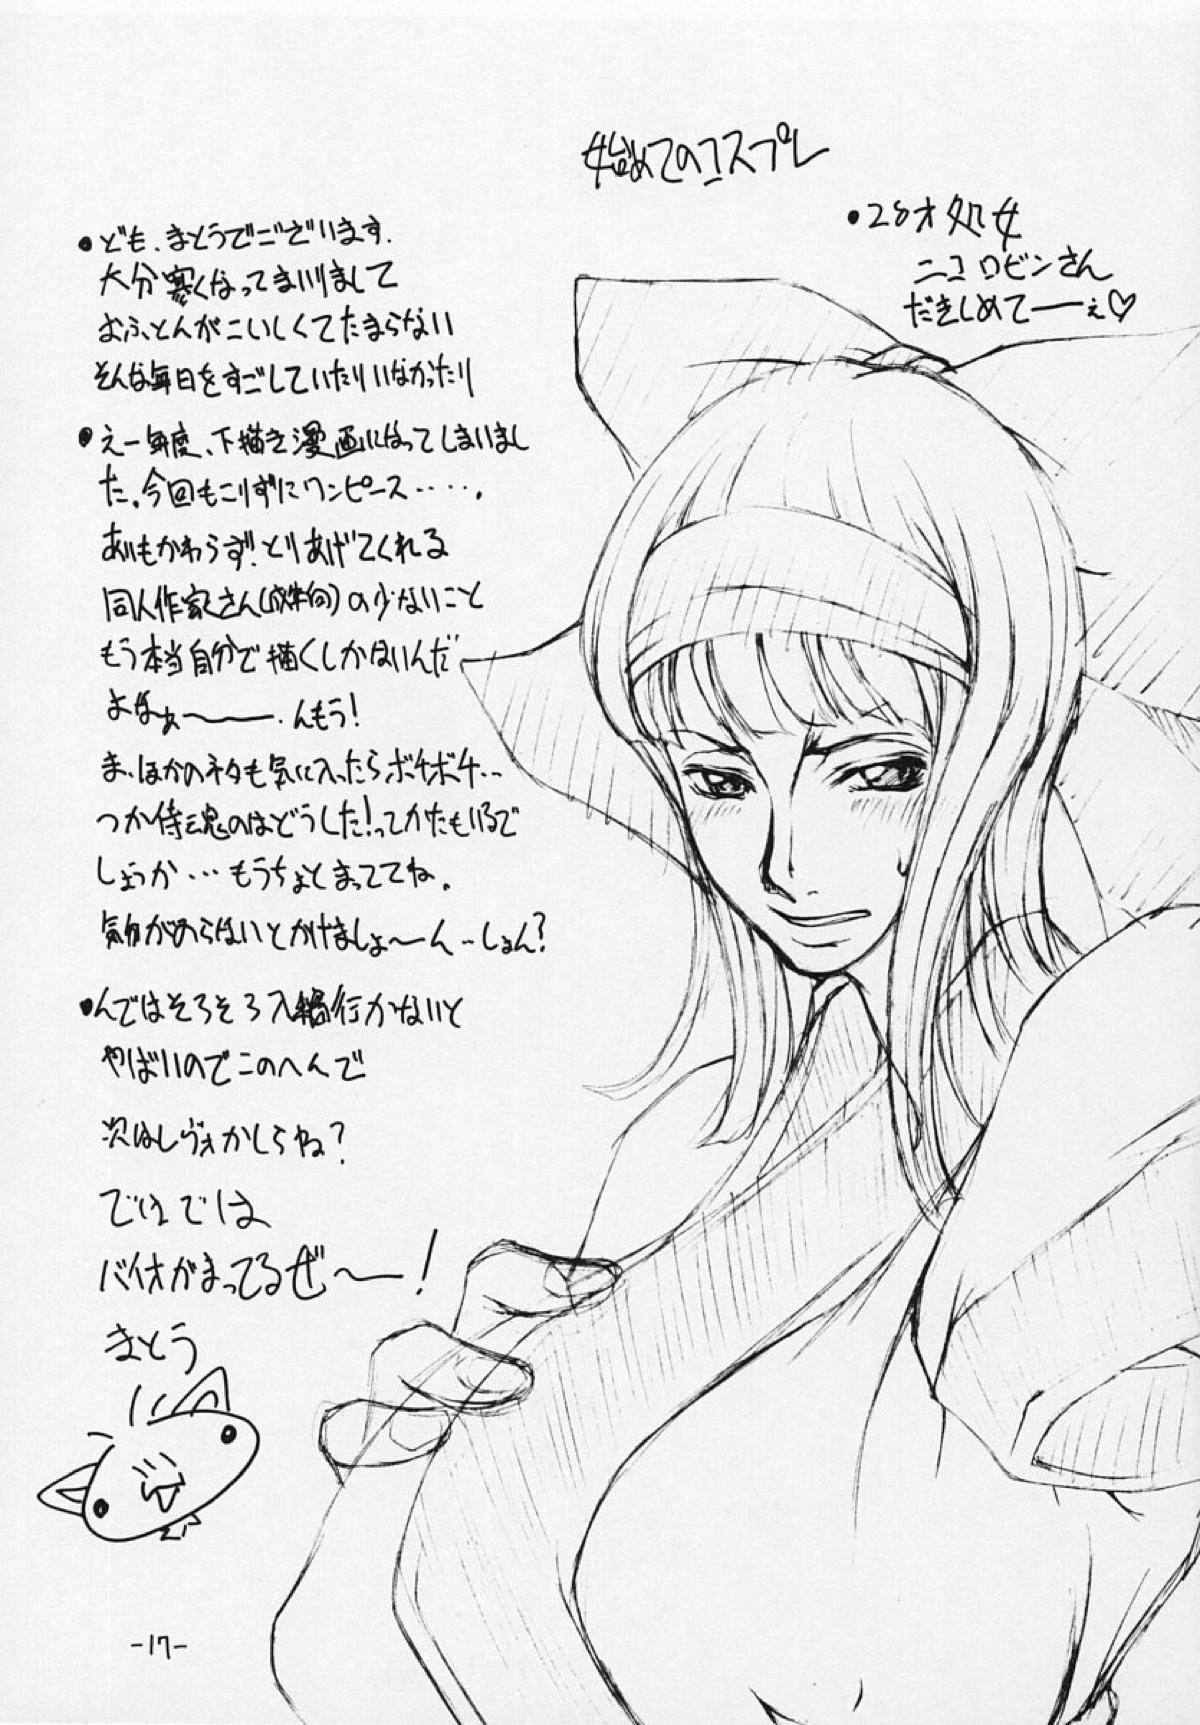 始めてのコスプレ
•28才処女
ニコロビンさん
だきしめてーーぇ♡
•ども、まとうでございます.
大分寒くなってまいりまして
おふとんがこいしくてたまらない
そんな毎日をすごしていたりいなかったり
•えー毎度、下描き漫画になってしまいまし
た。今回もこりずにワンピース‥‥‥.
あいもかわらず!とりあげてくれる
同人作家さん(成年向)の少ないこと
もう本当自分で描くしかないんだ
よなぁ〜――.んもう!
ま、ほかのネタも気に入ったらボチボチ‥
つか侍魂のはどうした!ってかたもいるで
しょうか…もうちょとまっててね。
気分がのらないとかけましょ〜ん‥しょん?
•んではそろそろ入稿行かないと
やばいのでこのへんで
次はレヴォかしらね?
ではでは
バイオがまってるぜ〜―!
まとう
-17-